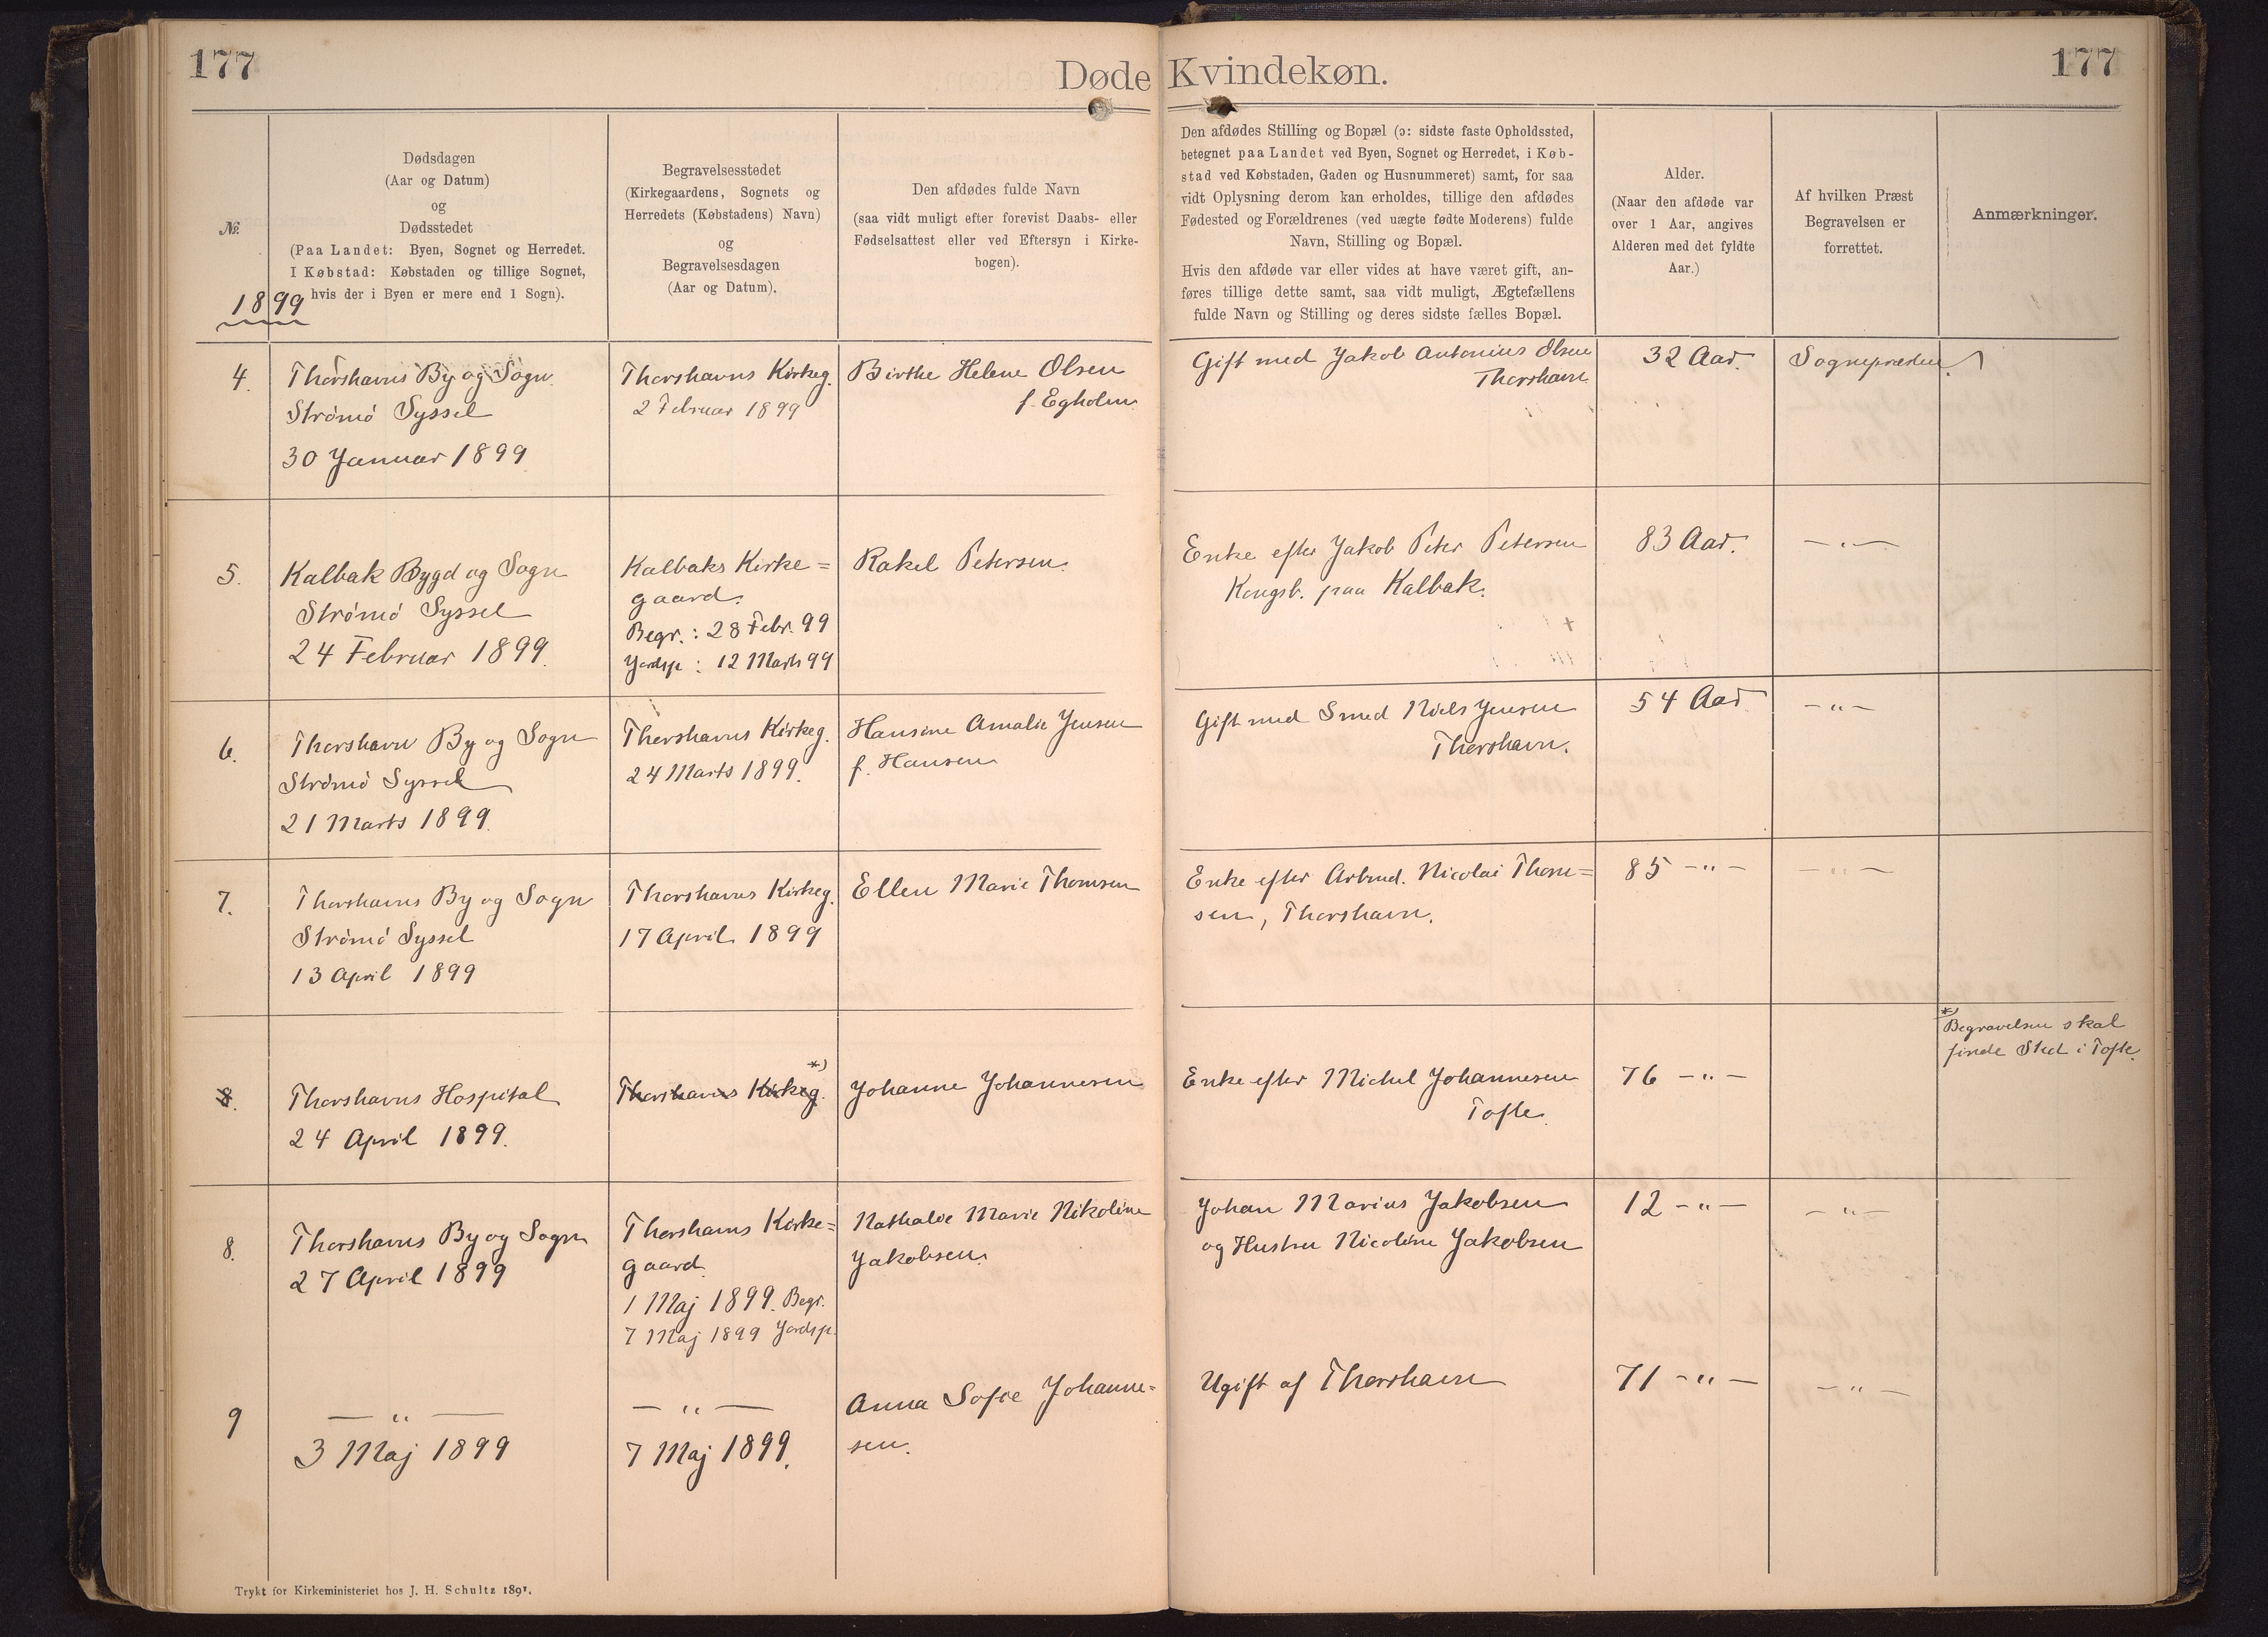 177
Døde Kvindekøn.
177
№
Dødsdagen
(Aar og Datum)
og
Dødsstedet
(Paa Landet: Byen, Sognet og Herredet.
I Købstad: Købstaden og tillige Sognet,
hvis der i Byen er mere end 1 Sogn).
Begravelsesstedet
(Kirkegaardens, Sognets og
Herredets (Købstadens) Navn)
og
Begravelsesdagen
(Aar og Datum).
Den afdødes fulde Navn
(saa vidt muligt efter forevist Daabs- eller
Fødselsattest eller ved Eftersyn i Kirke-
bogen).
Den afdødes Stilling og Bopæl (ɔ: sidste faste Opholdssted,
betegnet paa Landet ved Byen, Sognet og Herredet, i Køb-
stad ved Købstaden, Gaden og Husnummeret) samt, for saa
vidt Oplysning derom kan erholdes, tillige den afdødes
Fødested og Forældrenes (ved uægte fødte Moderens) fulde
Navn, Stilling og Bopæl.
Hvis den afdøde var eller vides at have været gift, an-
føres tillige dette samt, saa vidt muligt, Ægtefællens
fulde Navn og Stilling og deres sidste fælles Bopæl.
Alder.
(Naar den afdøde var
over 1 Aar, angives
Alderen med det fyldte
Aar.)
Af hvilken Præst
Begravelsen er
forrettet.
Anmærkninger.
1899
4.
Thorshavns By og Sogn
Strømø Syssel
30 Januar 1899
Thorshavns Kirkeg.
2 Februar 1899
Birthe Helene Olsen
f. Egholm
Gift med Jakob Antonius Olsen
Thorshavn
32 Aar.
Sognepræsten
5.
Kalbak Bygd og Sogn
Strømø Syssel
24 Februar 1899.
Kalbaks Kirke=
gaard.
Begr.: 28 Febr. 99
Jordsp: 12 Marts 99
Rakel Petersen.
Enke efter Jakob Peter Petersen
Kongsb. paa Kalbak.
83 Aar.
— „ —
6.
Thorshavn By og Sogn
Strømø Syssel
21 Marts 1899.
Thorshavns Kirkeg.
24 Marts 1899.
Hansine Amalie Jensen
f. Hansen
Gift med Smed Niels Jensen
Thorshavn.
54 Aar
— „ —
7.
Thorshavns By og Sogn
Strømø Syssel
13 April 1899
Thorshavns Kirkeg.
17 April 1899
Ellen Marie Thomsen
Enke efter Arbmd. Nicolai Thom=
sen, Thorshavn.
85 — „ —
— „ —
8.
Thorshavns Hospital
24 April 1899.
Thorshavns Kirkeg. *)
Johanne Johannesen
Enke efter Michel Johannesen
Tofte.
76 — „ —
*)
Begravelsen skal
finde Sted i Tofte.
8.
Thorshavns By og Sogn
27 April 1899
Thorshavns Kirke=
gaard
1 Maj 1899. Begr.
7 Maj 1899 Jordsp.
Nathalie Marie Nikoline
Jakobsen.
Johan Marius Jakobsen
og Hustru Nicoline Jakobsen
12 — „ —
— „ —
9
— „ —
3 Maj 1899
— „ —
7 Maj 1899.
Anna Sofie Johanne=
sen.
Ugift af Thorshavn
71 — „ —
— „ —
Trykt for Kirkeministeriet hos J. H. Schultz 1891.